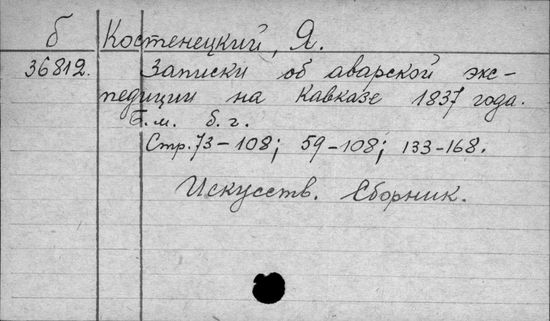 б Костенецкий, Я.
36812. Записки об аварской экс-
педиции на Кавказе 1837 года.
Б.м. б.г.
Стр. 73-108; 59-108; 133-168.
Искусств. Сборник.